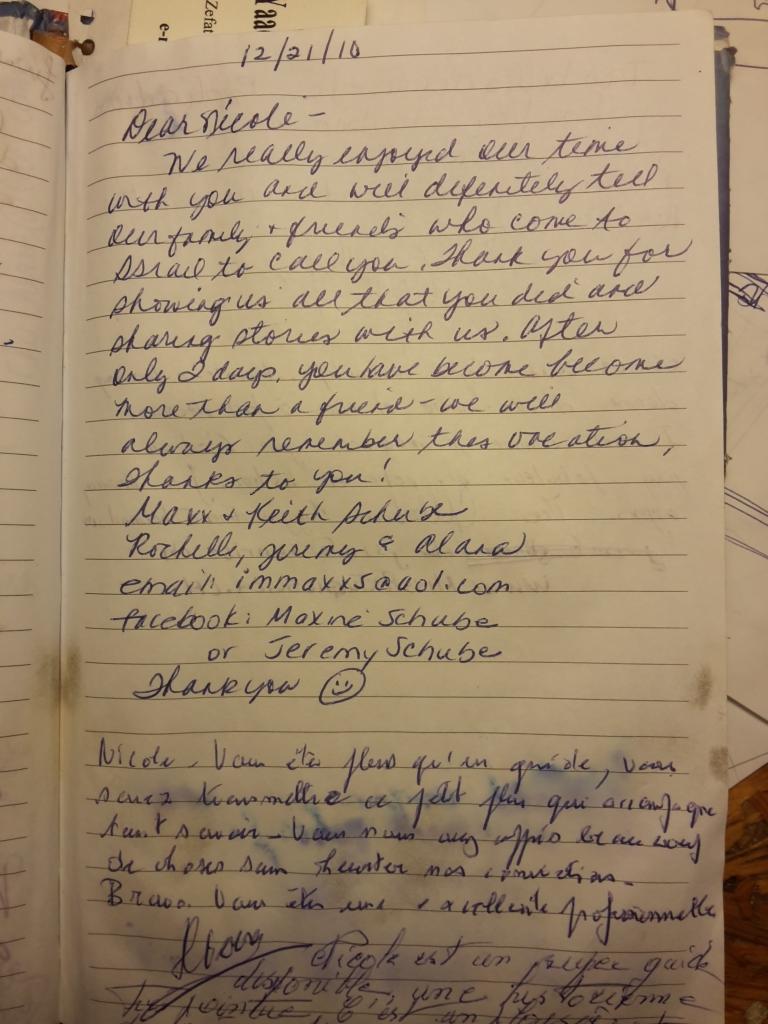 Zefat
e-r
12/21/10
Dear Nicole -
We really enjoyed our time
with you and will definitely tell
our family + friends who come to
Israel to call you. Thank you for
showing us all that you did and
sharing stories with us. After
only 2 days, you have become become
more than a friend - we will
always remember this vacation,
thanks to you!
Maxx + Keith Schube
Rochelle, Jeremy & Alana
email: immaxx5@aol.com
facebook: Maxine Schube
or Jeremy Schube
Thank you
Nicole - Vous êtes plus qu'un guide, vous
savez transmettre ce petit plus qui accompagne
tant savoir - Vous nous avez appris beaucoup
de choses sans heurter nos convictions.
Bravo. Vous êtes une excellente professionnelle
Nicole est un guide
disponible, une historienne